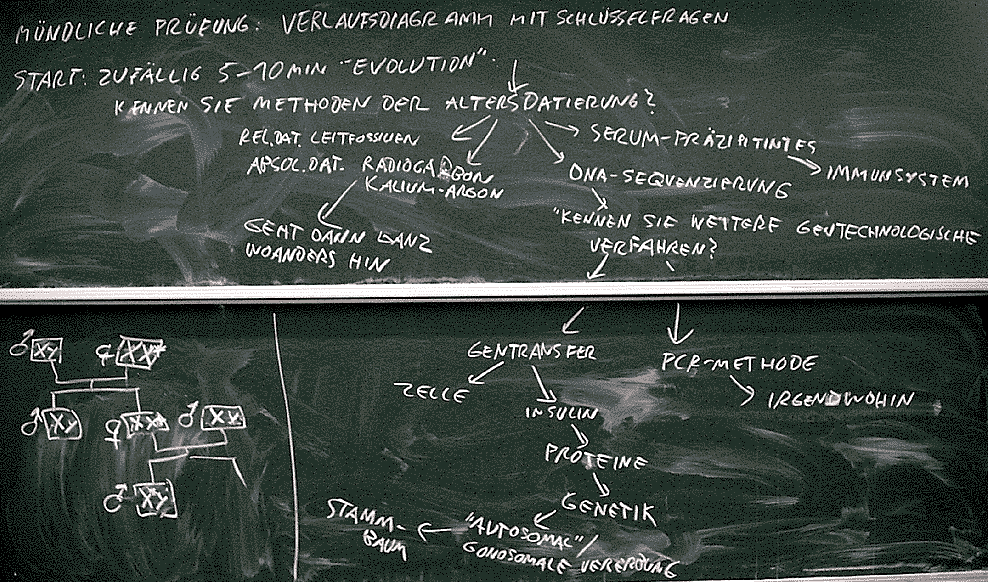 MÜNDLICHE PRÜFUNG: VERLAUFSDIAGRAMM MIT SCHLÜSSELFRAGEN
START: ZUFÄLLIG 5-10 MIN "EVOLUTION".
KENNEN SIE METHODEN DER ALTERSDATIERUNG?
REL. DAT. LEITFOSSILIEN
ABSOL. DAT.
KALIUM-ARGON
GEHT DANN GANZ
WOANDERS HIN
SERUM-PRÄZIPITINTES
IMMUNSYSTEM
DNA-SEQUENZIERUNG
"KENNEN SIE WEITERE GENTECHNOLOGISCHE
VERFAHREN?
GENTRANSFER
ZELLE
INSULIN
PROTEINE
GENETIK
"AUTOSOMAL"/
GONOSOMALE VERERBUNG
STAMM-
BAUM
PCR-METHODE
IRGENDWOHIN
♂ XY ♀ XX*
♂ XY ♀ XX* ♂ XY
♂ XY